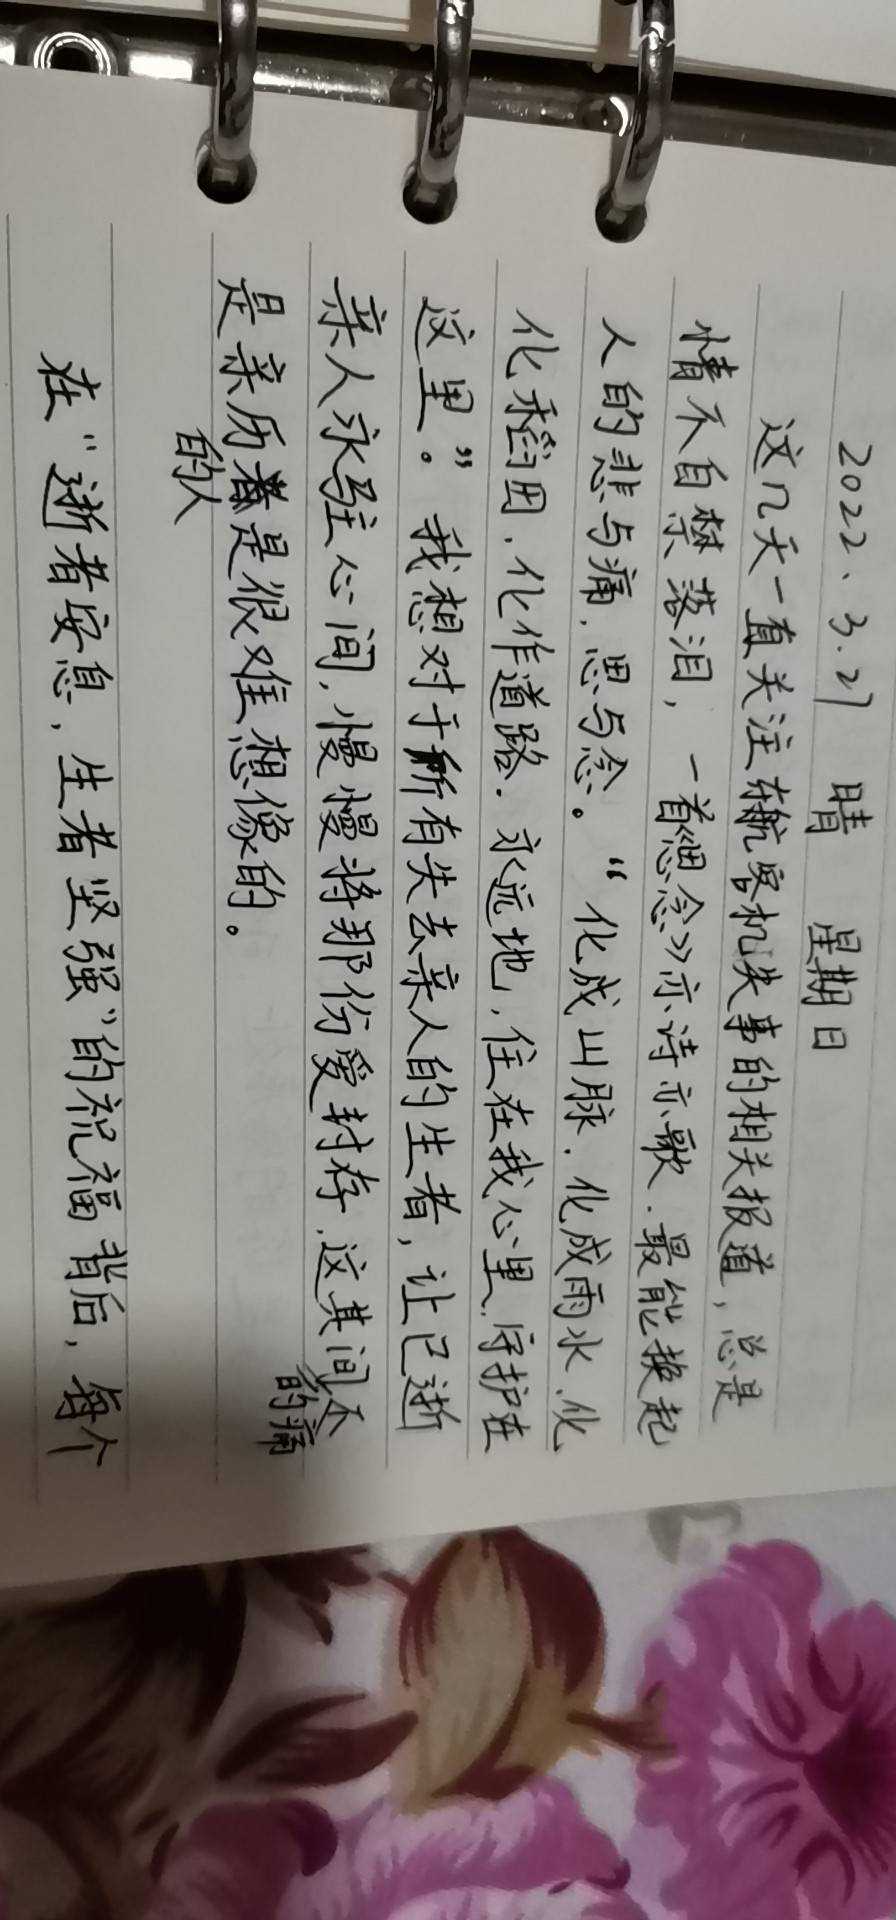 2022、3.27 晴 星期日
这几天一直关注东航客机失事的相关报道，总是
情不自禁落泪，一首《思念》亦诗亦歌.最能换起
人的悲与痛.思与念。“化成山脉.化成雨水.化
化稻田.化作道路.永远地，住在我心里.守护在
这里”。我想对于所有失去亲人的生者，让已逝
亲人永驻心间，慢慢将那份爱封存.这其间
的痛不
是亲历
的人
是很难想像的。
在“逝者安息，生者坚强”的祝福背后，每个